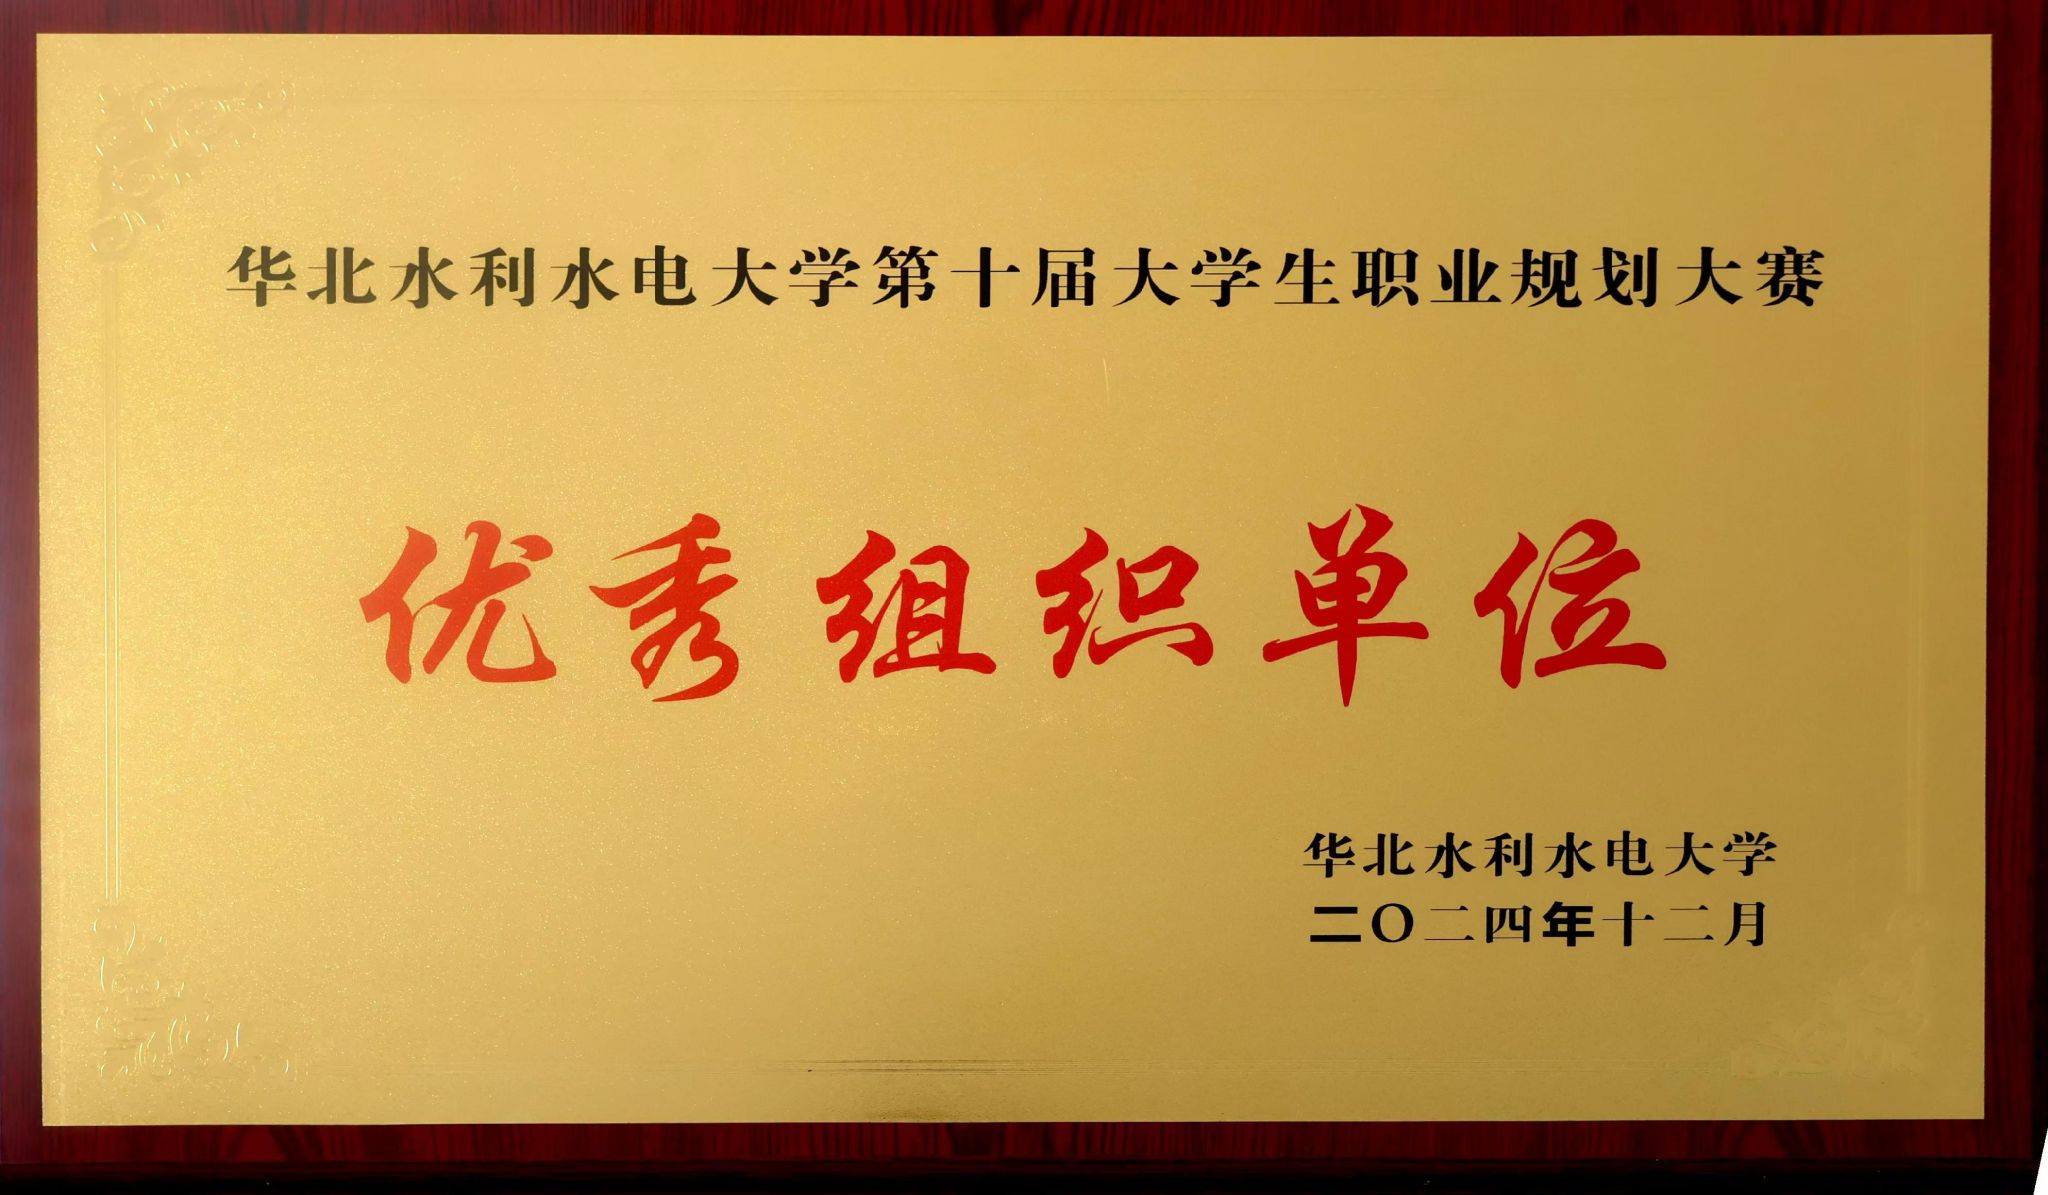 华北水利水电大学第十届大学生职业规划大赛
优秀组织单位
华北水利水电大学
二〇二四年十二月